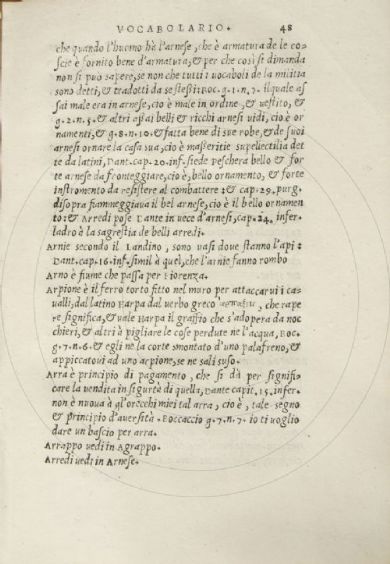 VOCABOLARIO. 48
che quando l'huomo hà l'arnese, che è armatura de le co=
scie è fornito bene d'armatura, & per che così si dimanda
non si può sapere, se non che tutti i uocaboli de la militia
sono detti, & tradotti da se stessi: Boc. g. 1. n. 7. il quale as
sai male era in arnese, cio è male in ordine, & uestito, &
g. 2. n. 5. & altri assai belli & ricchi arnesi uidi, cio è or
namenti, & g. 8. n. 10. & fatta bene di sue robe, & de suoi
arnesi ornare la casa sua, cio è masseritie supellectilia det
te da latini, Dant. cap. 20. inf. siede Peschera bello & for
te arnese da fronteggiare, cio è, bello ornamento, & forte
instromento da resistere al combattere: & cap. 29. purg.
di sopra fiammeggiaua il bel arnese, cio è il bello ornamen
to: & Arredi pose Dante in uece d'arnesi, cap. 24. infer.
ladro à la sagrestia de belli arredi.
Arnie secondo il Landino, sono uasi doue stanno l'api:
Dant. cap. 16. inf. simil à quel, che l'arnie fanno rombo
Arno è fiume che passa per Fiorenza.
Arpione è il ferro torto fitto nel muro per attaccarui i ca=
ualli, dal latino Harpa dal uerbo greco che rape
re significa, & uale Harpa il graffio che s'adopera da noc
chieri, & altri à pigliare le cose perdute ne l'acqua, Boc.
g. 7. n. 6. & egli ne la corte smontato d'uno palafreno, &
appiccatoui ad uno arpione, se ne salì suso.
Arra è principio di pagamento, che si dà per signifi=
care la uendita in sigurtà di quella, Dante capit. 15. infer.
non è nuoua à gl'orecchi miei tal arra, cio è, tale segno
& principio d'auersità. Boccaccio g. 7. n. 7. io ti uoglio
dare un bascio per arra.
Arrappo uedi in Agrappo.
Arredi uedi in Arnese.